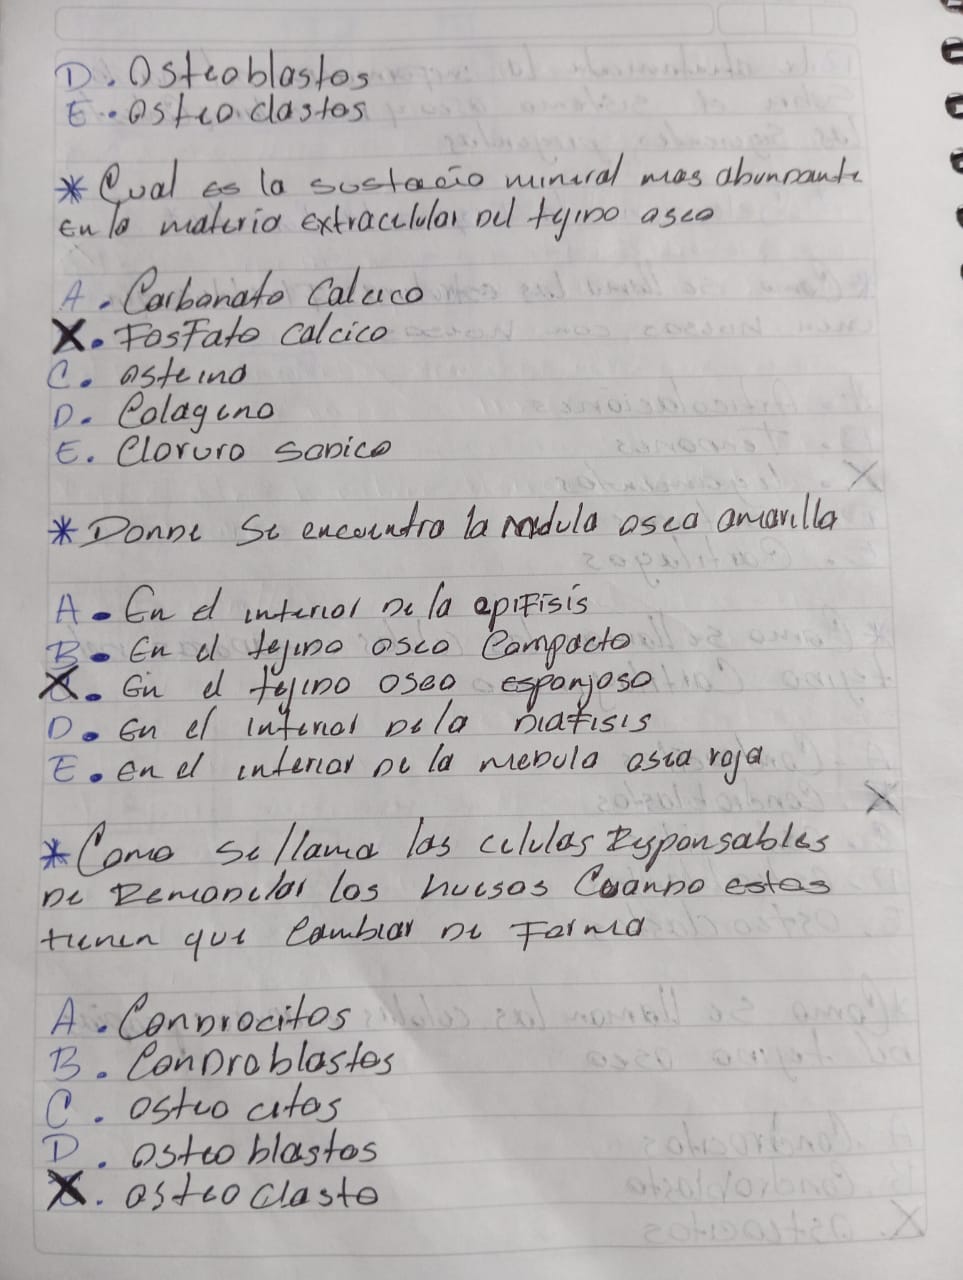 D. Osteoblastos
E. osteo.clastos
* Cual es la sustacio mineral mas abundante
en la materia extracelular del tejido aseo
A. Carbonato Calcico
X. Fosfato calcico
C. osteina
D. Colageno
E. Cloruro sodico
* Donde Se encuentra la medula osea amarilla
A. En el interior de la epifisis
B. En el tejido oseo Compacto
X. En el tejido oseo esponjoso
D. En el interior de la diafisis
E. en el interior de la medula osea roja
* Como Se llama las celulas responsables
de Remodelar los huesos Cuando estos
tienen que Cambiar de Forma
A. Condrocitos
B. Condroblastos
C. osteo citos
D. osteo blastos
X. osteo clasto